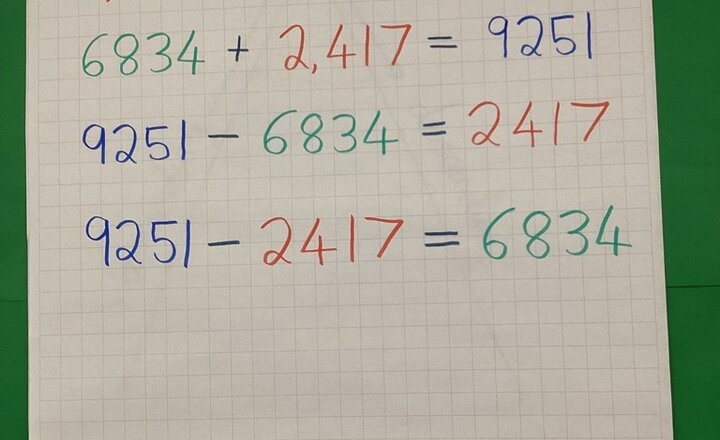 6834 + 2,417 = 9251
9251 - 6834 = 2417
9251 - 2417 = 6834